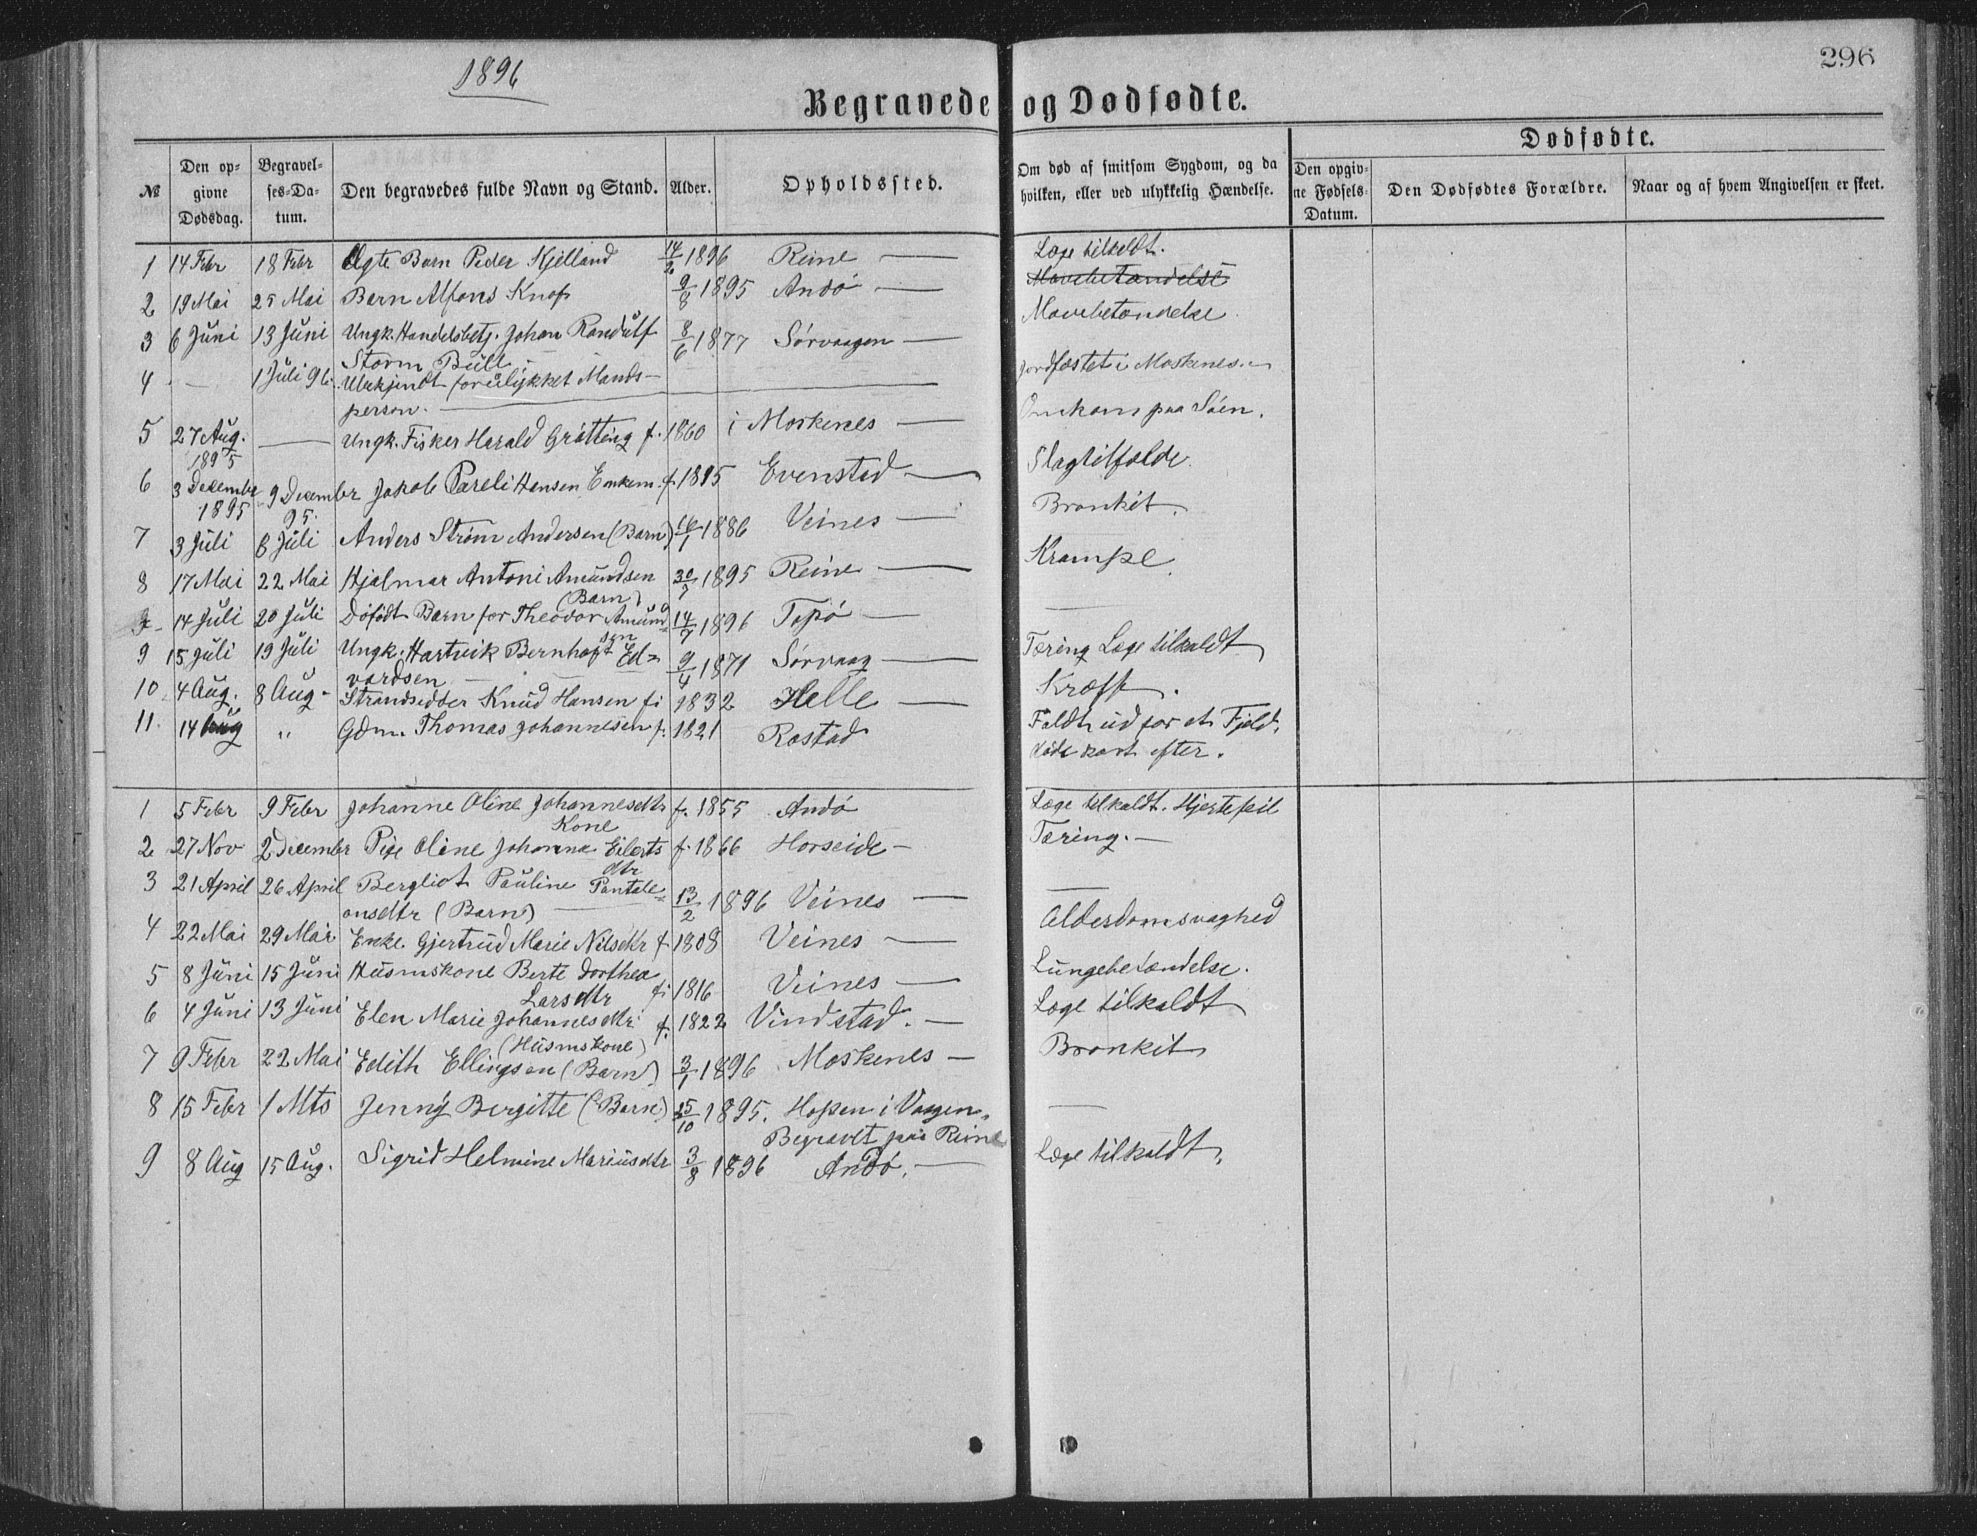 1896
296
Begravede og Dødfødte.
Dødfødte.
№ Den opgivne Dødsdag. Begravelses-Datum. Den begravedes fulde Navn og Stand. Alder. Opholdssted. Om død af smitsom Sygdom, og da hvilken, eller ved ulykkelig Hændelse. Den opgivne Fødsels-Datum. Den Dødfødtes Forældre. Naar og af hvem Angivelsen er skeet.
1 14 Febr 18 Febr Ægte Barn Peder Kjelland 14/2 1896 Reine — Læge tilkaldt.
Mavebetændelse
2 19 Mai 25 Mai Barn Alfons Knop 9/8 1895 Andö — Mavebetændelse.
3 6 Juni 13 Juni Ungk. Handelsbetj. Johan Randulf 8/6 1877 Sørvaagen —
Storm Bull —
4 . — 1 Juli 96. Ubekjendt forulykket Mands- Jordfæstet i Moskenes. —
person. —
5 27 Aug. 1895 — Ungk. Fisker Harald Grötting f. 1860 i Moskenes — Omkom paa Söen.
6 3 Decembr 1895 9 Decembr 95. Jakob Pareli Hansen Enkem. f. 1815 Evenstad — Slagtilfælde.
7 3 Juli 8 Juli Anders Strøm Andersen (Barn) 16/1 1886 Veines — Bronkit.
8 17 Mai 22 Mai Hjalmar Antoni Amundsen 30/7 1895 Reine — Krampe
(Barn)
14 Juli 20 Juli Döfödt Barn for Theodor Amund- 14/7 1896 Topö — —
sen
9 15 Juli 19 Juli Ungk. Hartvik Bernhoft Ed- 9/4 1871 Sørvaag — Tæring Læge tilkaldt
vardsen —
10. 4 Aug. 8 Aug. Strandsidder Knud Hansen f. 1832 Helle — Kræft.
11. 14 Aug „ Gdm. Thomas Johannesen f. 1821 Rostad Faldt ud for et Fjeld,
døde kort efter.
1 5 Febr 9 Febr Johanne Oline Johannesdtr f. 1855 Andö Læge tilkaldt. Hjertefeil
Kone
2 27 Nov 2 Decembr Pige Oline Johanna Eilerts f. 1866 Horseide — Tæring. —
dtr
3 21 April 26 April Bergliot Pauline Pantale- —
onsdtr (Barn) — 13/2 1896 Veines —
4 22 Mai 29 Mai Enke Gjertrud Marie Nilsdtr f 1808 Veines — Alderdomsvaghed
5 8 Juni 15 Juni Husmskone Berte Dorthea Lungebetændelse.
Larsdtr f. 1816 Veines —
6 4 Juni 13 Juni Elen Marie Johannesdtr f. 1822 Vindstad. — Læge tilkaldt
(Husmskone)
7 9 Febr 22 Mai Edith Ellingsen (Barn) 3/1 1896 Moskenes — Bronkit
8 15 Febr 1 Mts Jenny Bergitte (Barn) 25/10 1895. Hopen i Vaagen, —
Begravet paa Reine
9 8 Aug 15 Aug. Sigrid Helmine Mariusdtr 3/8 1896 Andö. — Læge tilkaldt.